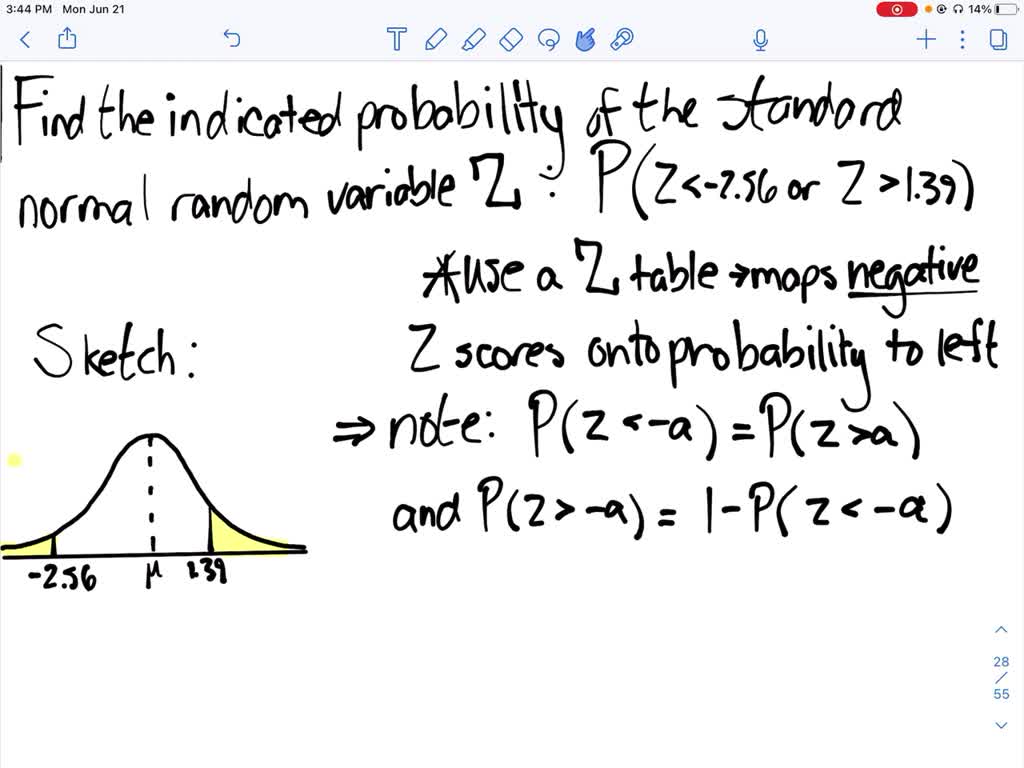 3:44 PM Mon Jun 21
14%
T
Find the indicated probability of the standard
normal random variable Z : P(Z<-2.56 or Z >1.39)
*use a Z table → maps negative
Sketch:
Z scores onto probability to left
⇒ note: P(Z < -a) = P(Z > a)
and P(Z > -a) = 1 - P(Z < -a)
-2.56 μ 1.39
28
/
55